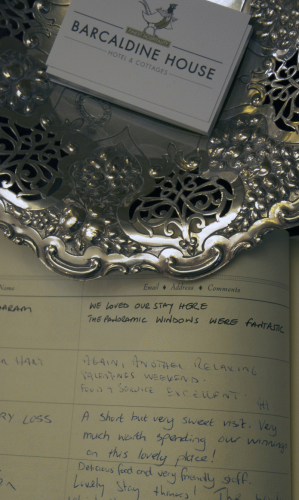 BARCALDINE HOUSE
HOTEL & COTTAGES
Name
Email ♦ Address ♦ Comments
WE LOVED OUR STAY HERE
THE PANORAMIC WINDOWS WERE FANTASTIC
AGAIN, ANOTHER RELAXING
VALENTINES WEEKEND.
FOOD & SERVICE EXCELLENT.
RY LOSS
A short but very sweet visit. Very
much worth spending our winnings
on this lovely place!
Delicious food and very friendly staff.
Lovely stay thanks!